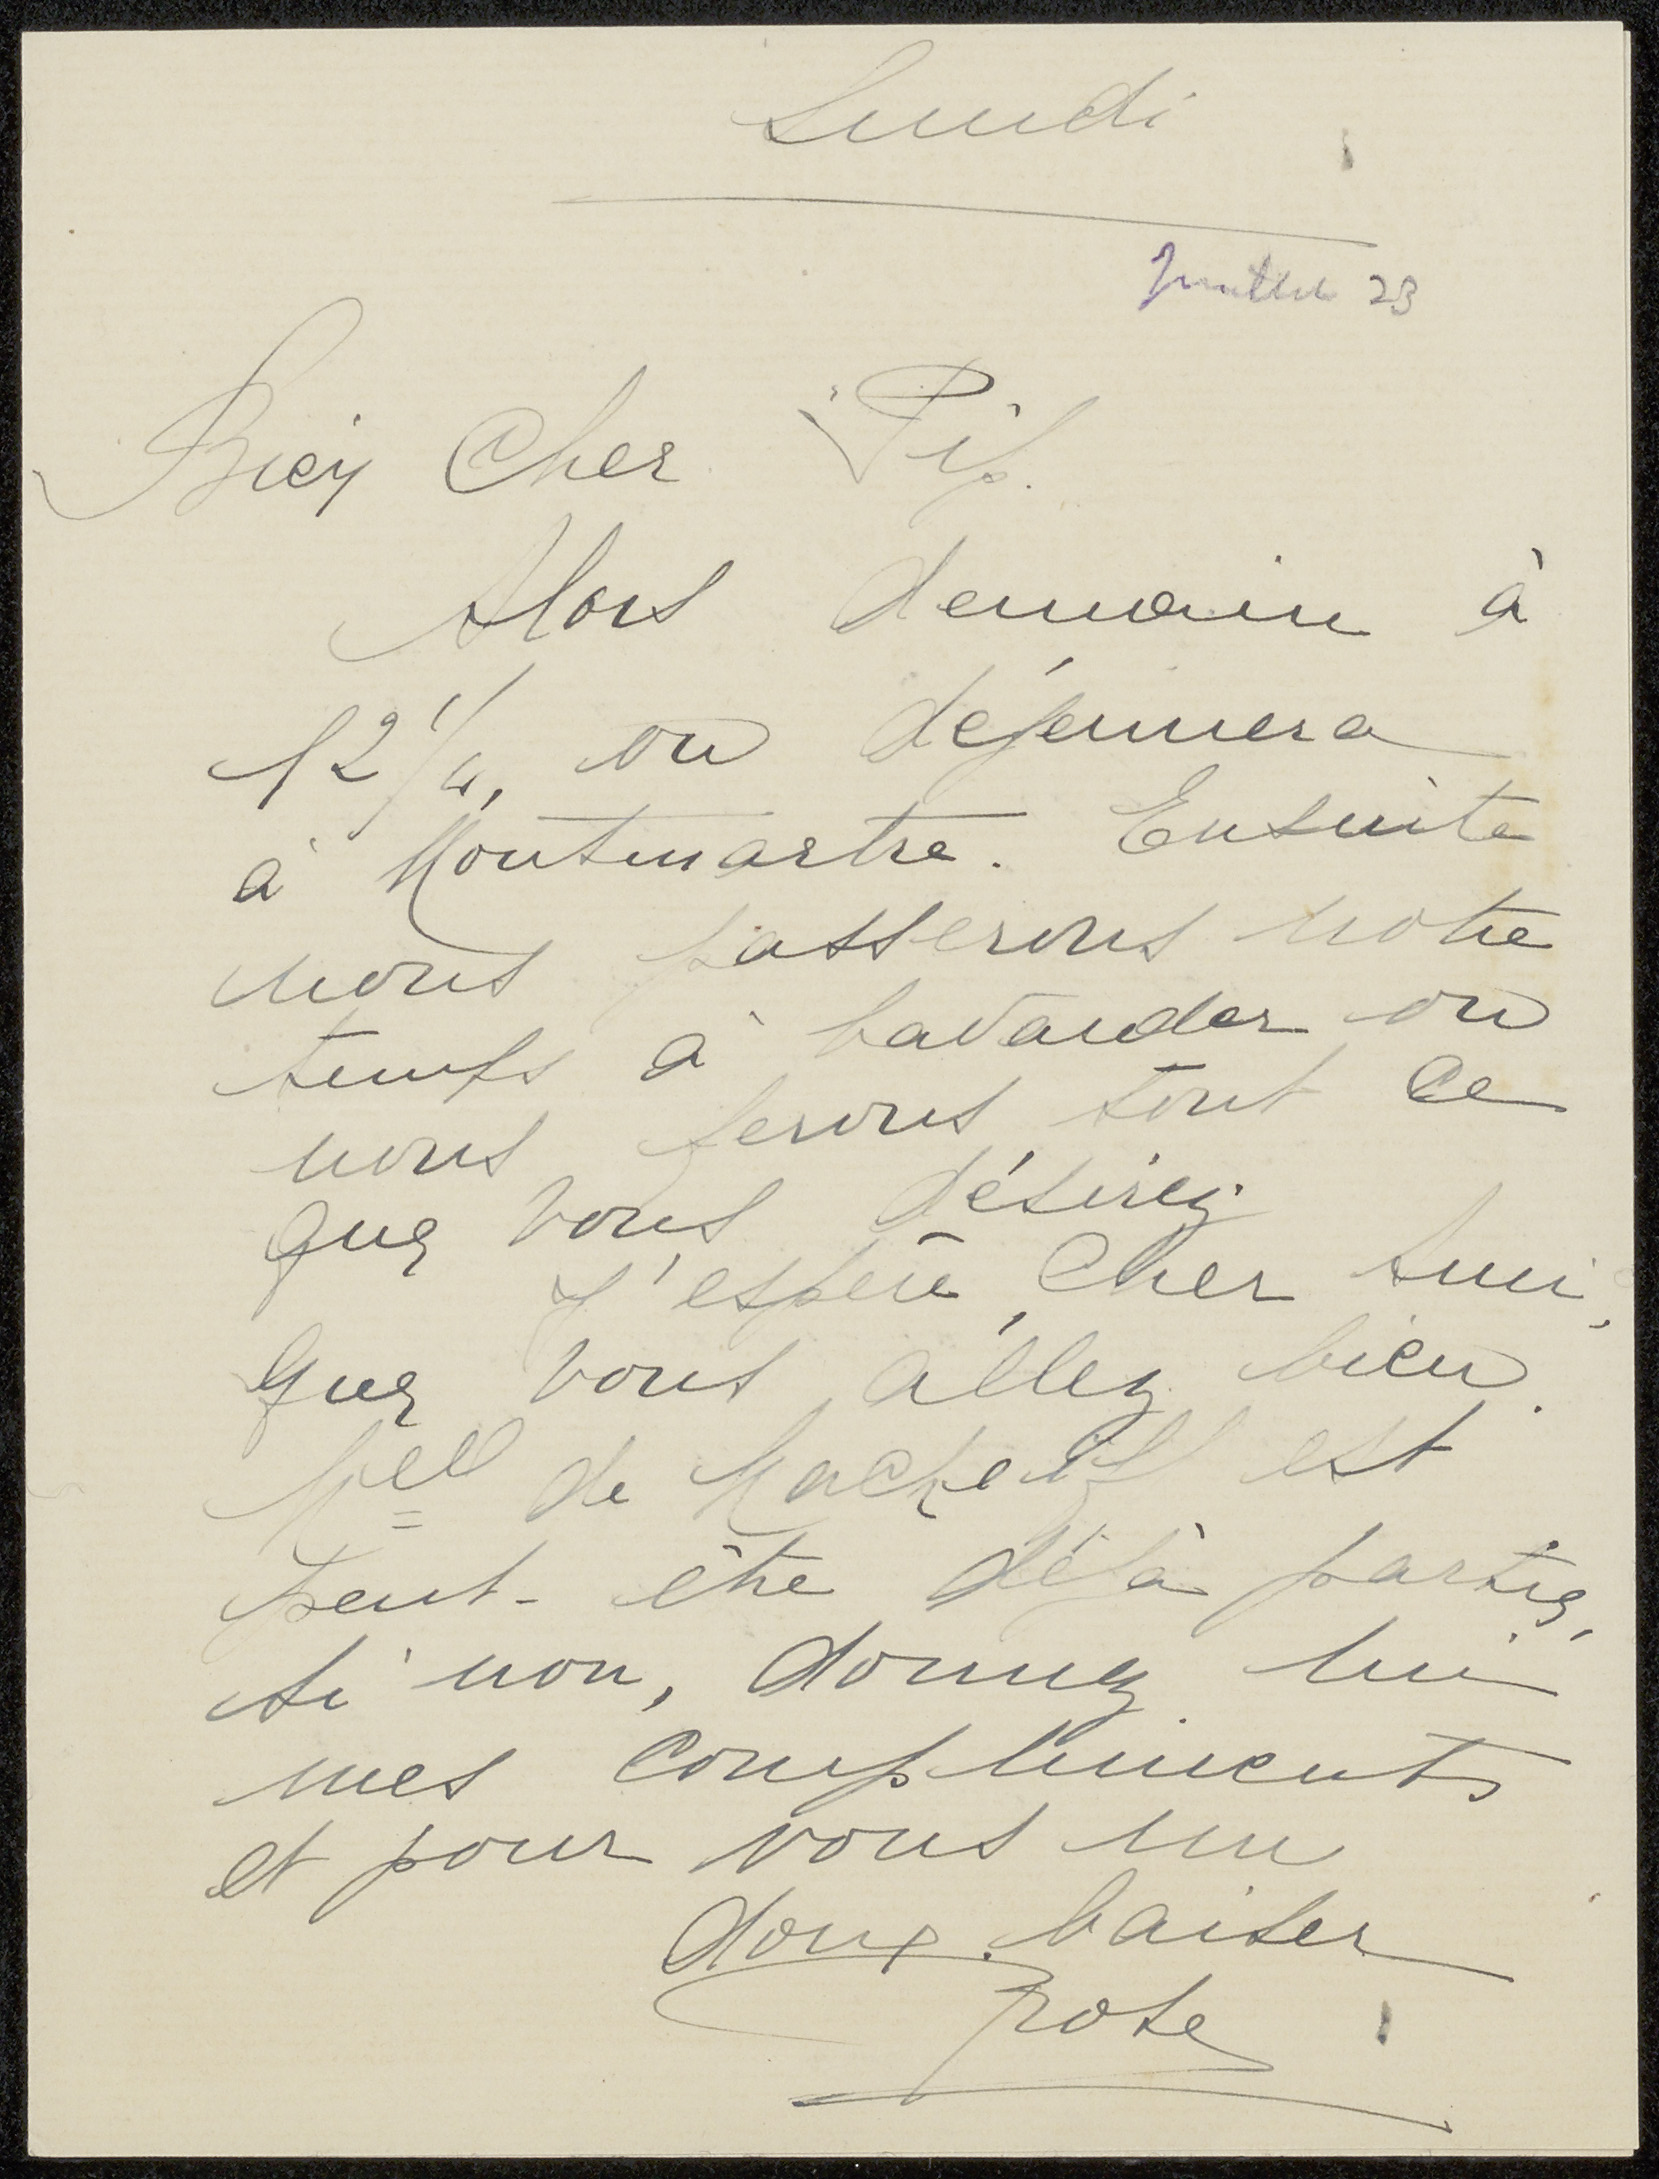 Lundi
Juillet 23
Bien Cher Pip.
Alors demain à
12 1/4, on déjeunera
à Montmartre. Ensuite
nous passerons notre
temps à bavarder ou
nous ferons tout ce
que vous désirez.
J'espère, Cher Ami,
que vous allez bien.
Mell de est
peut-être déjà partie,
si non, donnez lui
mes compliments
et pour vous un
doux baiser
Rose